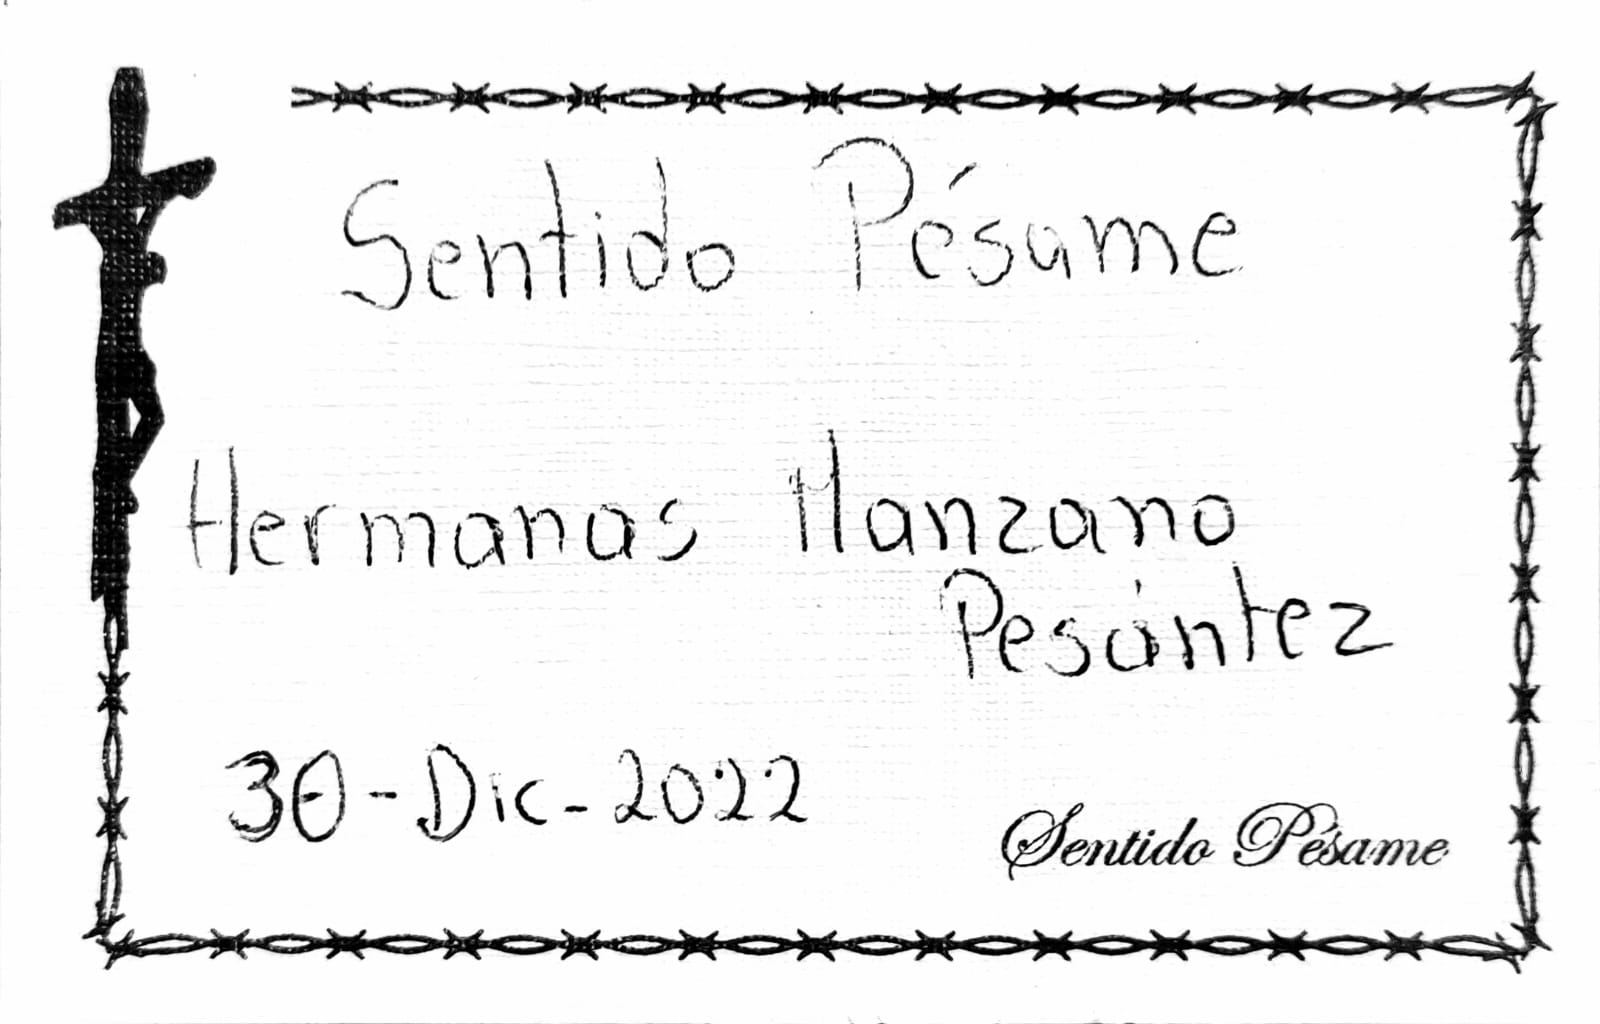 Sentido Pésame
Hermanas Manzano
Pesántez
30-Dic-2022
Sentido Pésame